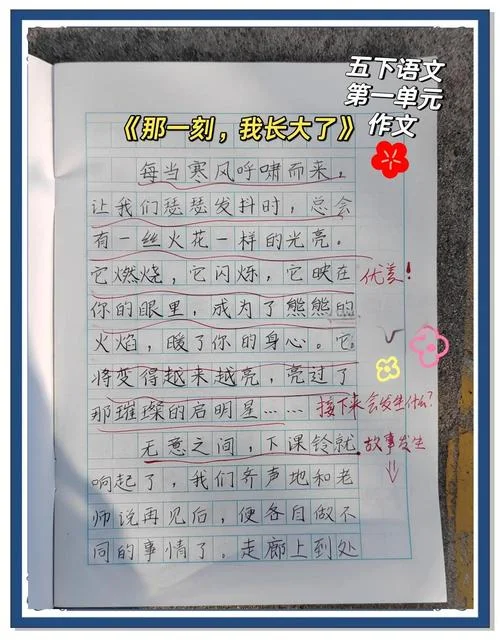 五下语文
第一单元
作文
《那一刻，我长大了》
每当寒风呼啸而来，
让我们瑟瑟发抖时，总会
有一丝火花一样的光亮。
它燃烧，它闪烁，它映在
优美！
你的眼里，成为了熊熊的
火焰，暖了你的身心。它
将变得越来越亮，亮过了
那璀璨的启明星……
接下来会发生什么？
无意之间，下课铃就
故事发生
响起了，我们齐声地和老
师说再见后，便各自做不
同的事情了。走廊上到处